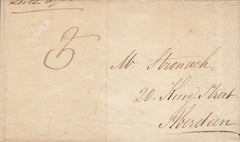 Mr Stronach,
20. King Street
Aberdeen